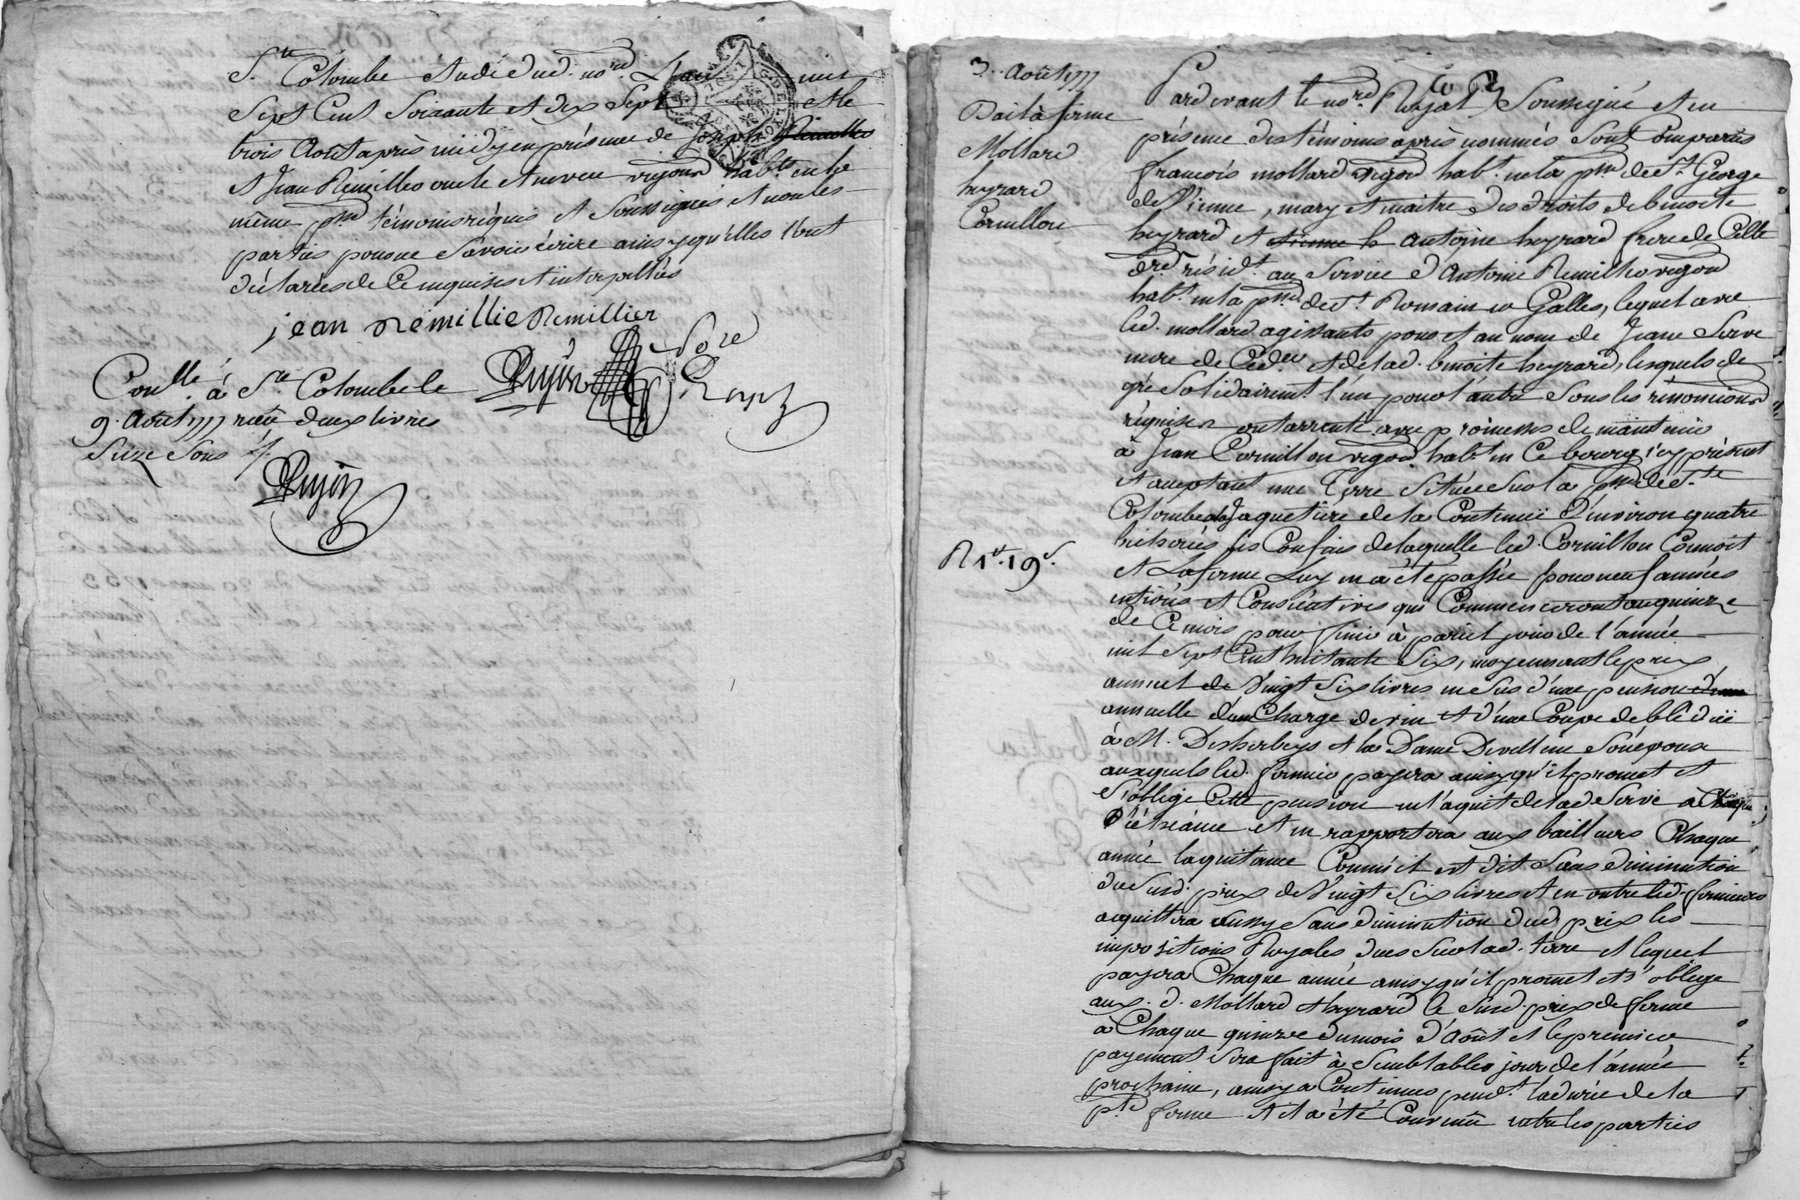 Ste Colombe Etude dud. nore. L'an mil
Sept Cent Soixante et dix Sept et le
trois Août après midy en présence de Joseph Remillier
et Jean Remillier oncle et neveu vigons habts. en lad.
même psse. témoins réquis et Soussignés et non les
parties pour ne Savoir écrire ainsy qu'elles l'ont
déclarées de Ce enquises et interpellées
jean remillie Remillier
Dujon Nore Royal
Conllé. à Ste Colombe le
9. Août 1777 reçu deux livres
Seize Sous
Dujon
3. Août 1777
Bail à ferme
Mollard
heyrard
Cornillon
R 1# 19s.
Pardevant le nore. Royal Soussigné et en
présence des témoins après nommés Sont Comparus
françois mollard vigon habt. en la psse. de St. George
de Vienne, mary et maître des droits de benoite
heyrard et Antoine heyrard frere de Celle
resídt. au Service d'Antoine Remillier vigon
habt. en la psse. de St. Romain en Galles, lequel avec
led. mollard agissants pour et au nom de Jeane Serve
mere de Ced. et de lad. benoite heyrard, lesquels de
gré Solidairemt l'un pour l'autre Sous les rénonciaons
réquises ont arrenté avec promesse de maintenir
à Jean Cornillon vigon habt. en Ce bourg icy présent
et acceptant une Terre Située Sur la psse. de Ste
Colombe de la Contenue d'environ quatre
bicherées les Confais de laquelle led. Cornillon Connoit
et La ferme Luy en a été passée pour neuf années
entières et Consécutives qui Commenceront au quinze
de Ce mois pour finir à pareil jour de l'année
mil Sept Cent huitante Six, moyennant le prix
annuel de Vingt Six livres en Sus d'une pension
annuelle d'une Charge de vin et d'une Coupe de blé düe
à M. Desherbeys et la Dame Divellene Son épouse
auxquels led. fermier payera ainsy qu'il promet et
S'oblige Cette pension en l'aquit de lad. Serve à Chaque
échéance et en rapportera aux bailleurs Chaque
année la quitance Comme il est dit Sans diminution
du Susd. prix de Vingt Six livres et en outre led. fermier
acquittera aussy Sans diminution dud. prix les
impositions Royales dues Sur lad. terre et lequel
payera Chaque année ainsy qu'il promet et S'oblige
aux d. Mollard et heyrard le Susd. prix de ferme
à Chaque quinze du mois d'Août et le premier
payement Sera fait à Semblables jour de l'année
prochaine, ainsy a Continuer pendt. la durée de la
pte. ferme et il a été Convenu entre les parties